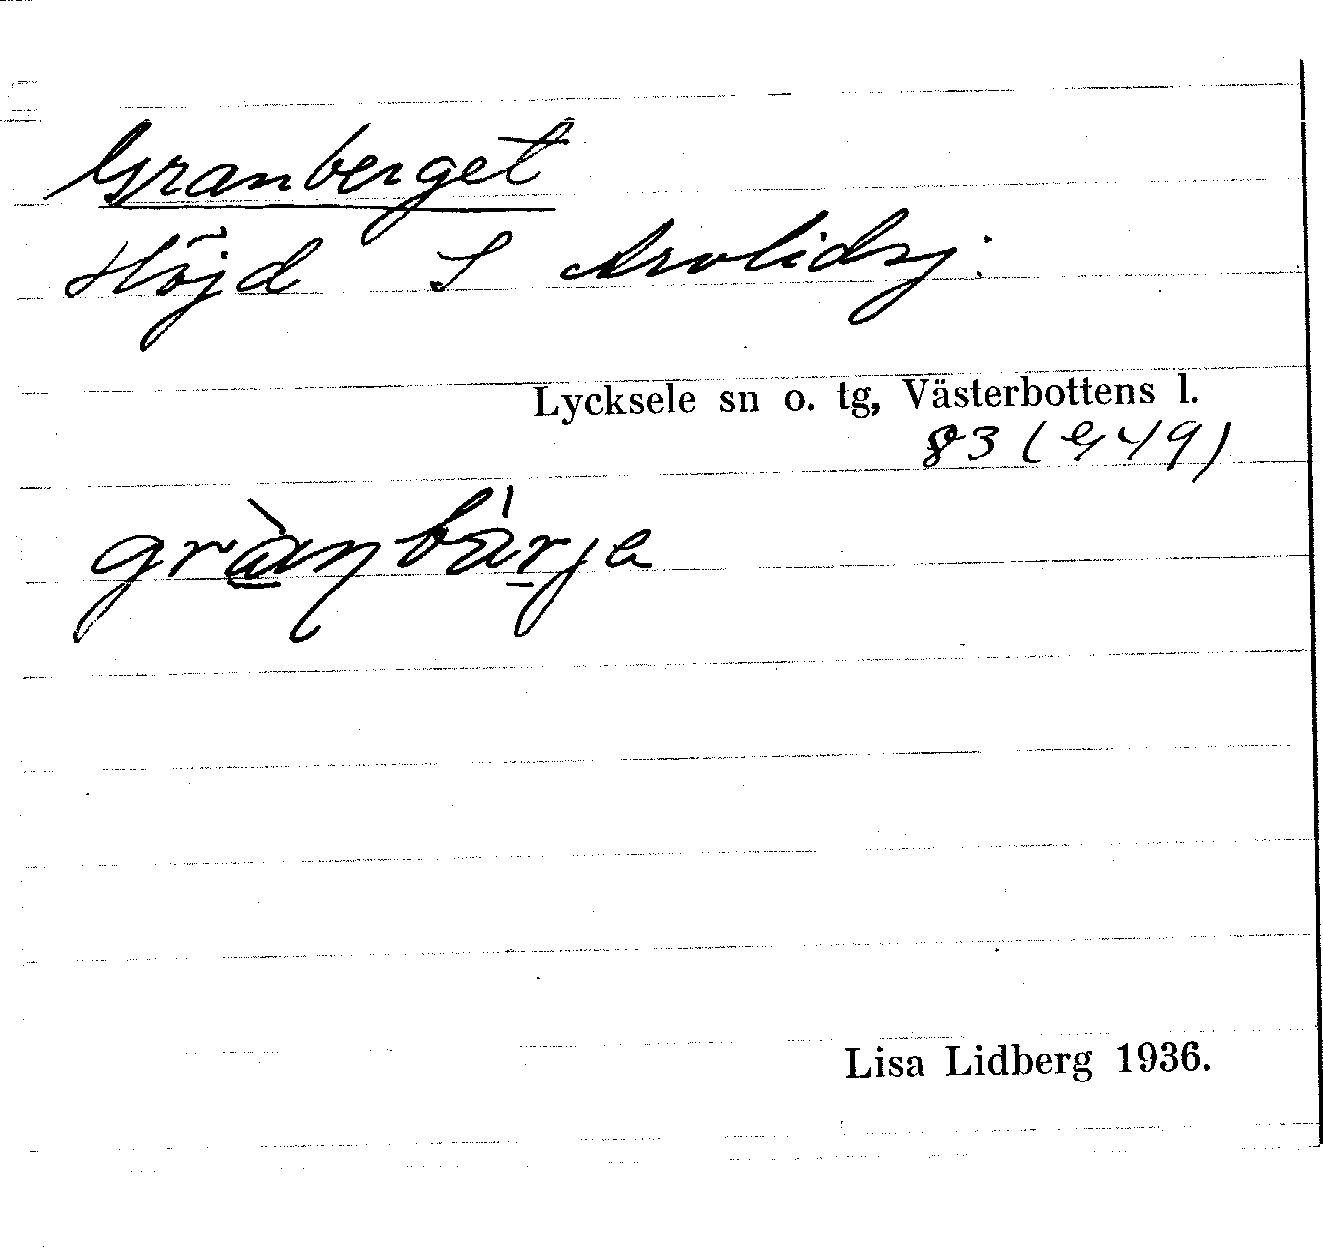 Granberget
Höjd S Arvlidsj.
Lycksele sn o. tg, Västerbottens l.
83 (G49)
gràn bárja
Lisa Lidberg 1936.